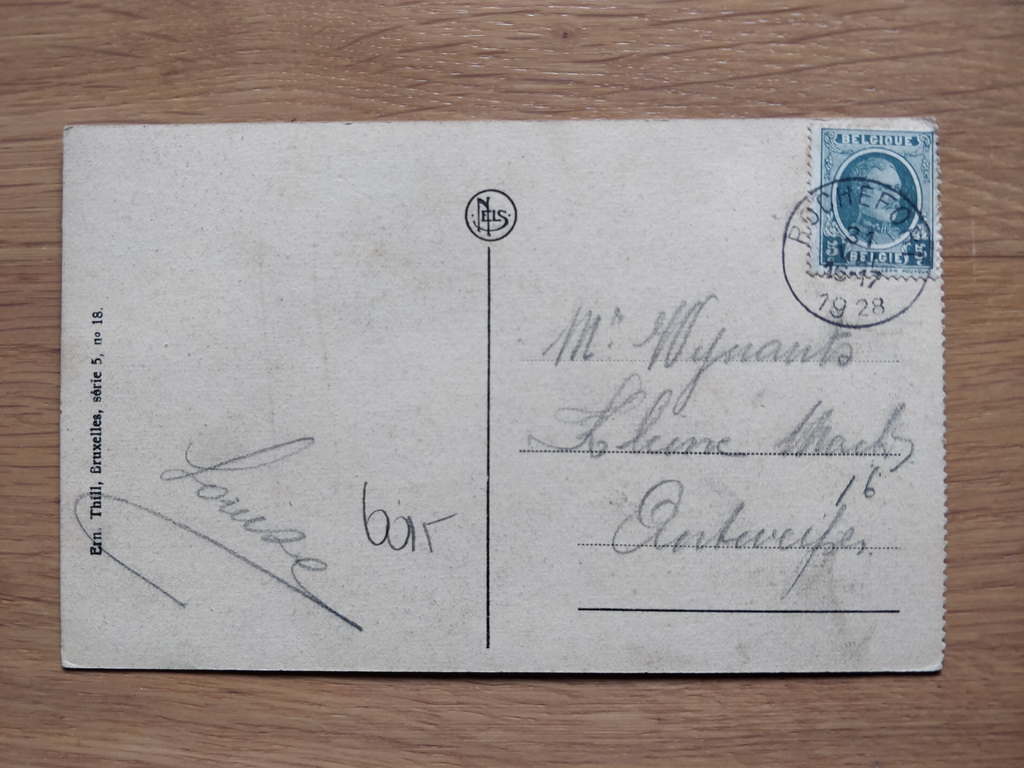 BELGIQUE
5 BELGIE 5
ROCHEFOR
31
16-17
1928
NELS
Mr Wynants
Kleine Markt
16
Antwerpen
Louise
Ern. Thill, Bruxelles, série 5, no 18.